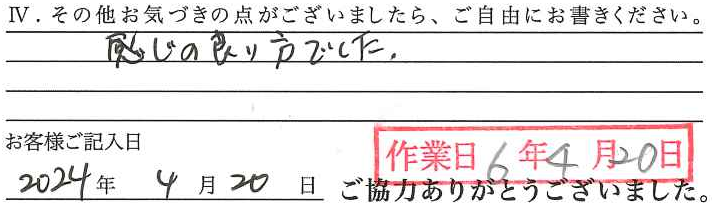 Ⅳ．その他お気づきの点がございましたら、ご自由にお書きください。
感じの良い方でした。
お客様ご記入日
作業日 6年4月20日
2024年 4月20日
ご協力ありがとうございました。